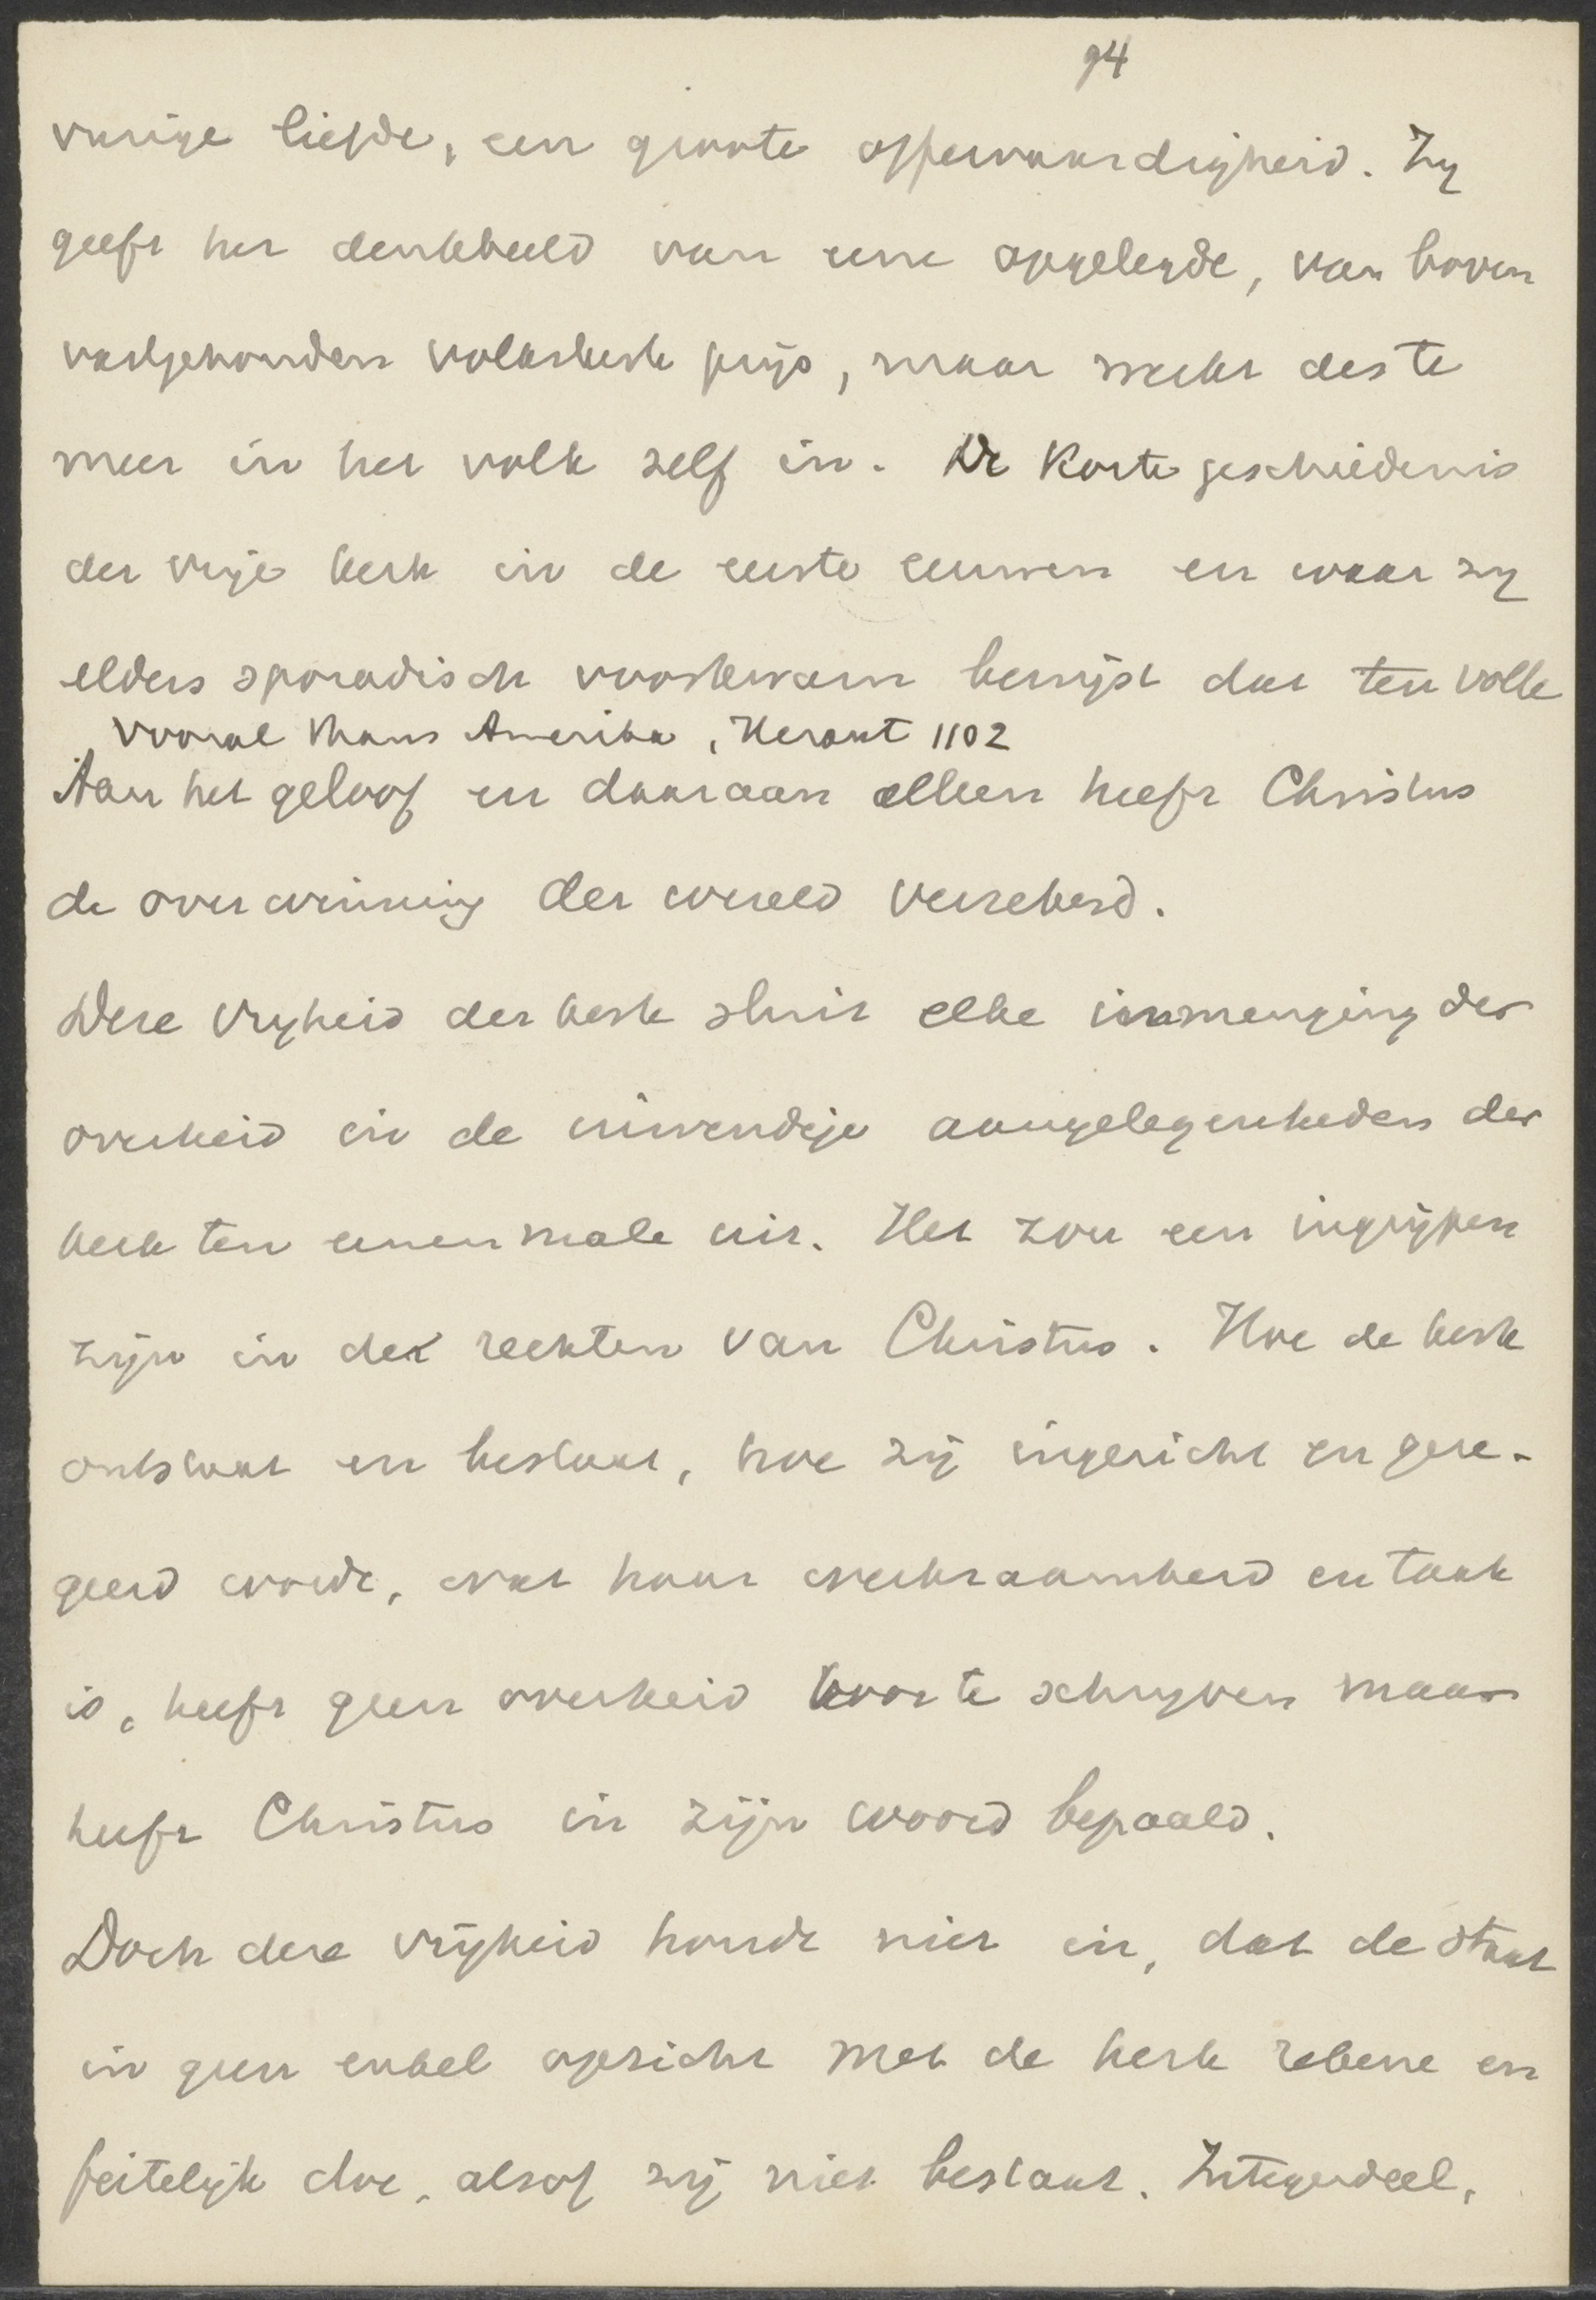 94
vurige liefde, een groote offervaardigheid. Zy
geeft het denkbeeld van eene opgelegde, van boven
vastgehouden volkskerk prijs, maar werkt des te
meer in het volk zelf in. De Korte geschiedenis
der vrije kerk in de eerste eeuwen en waar zy
elders sporadisch voorkwam bewijst dat ten volle
, vooral thans Amerika, Heraut 1102
Aan het geloof en daaraan alleen heeft Christus
de overwinning der wereld verzekerd.
Deze vryheid der kerk sluit elke inmenging der
overheid in de inwendige aangelegenheden der
kerk ten eenen male uit. Het zou een ingrijpen
zijn in de rechten van Christus. Hoe de kerk
ontstaat en bestaat, hoe zij ingericht en gere-
geerd wordt, wat haar werkzaamheid en taak
is, heeft geen overheid voor te schryven maar
heeft Christus in zijn woord bepaald.
Doch deze vrijheid houdt niet in, dat de staat
in geen enkel opzicht met de kerk rekene en
feitelijk doe, alsof zij niet bestaat. Integendeel,